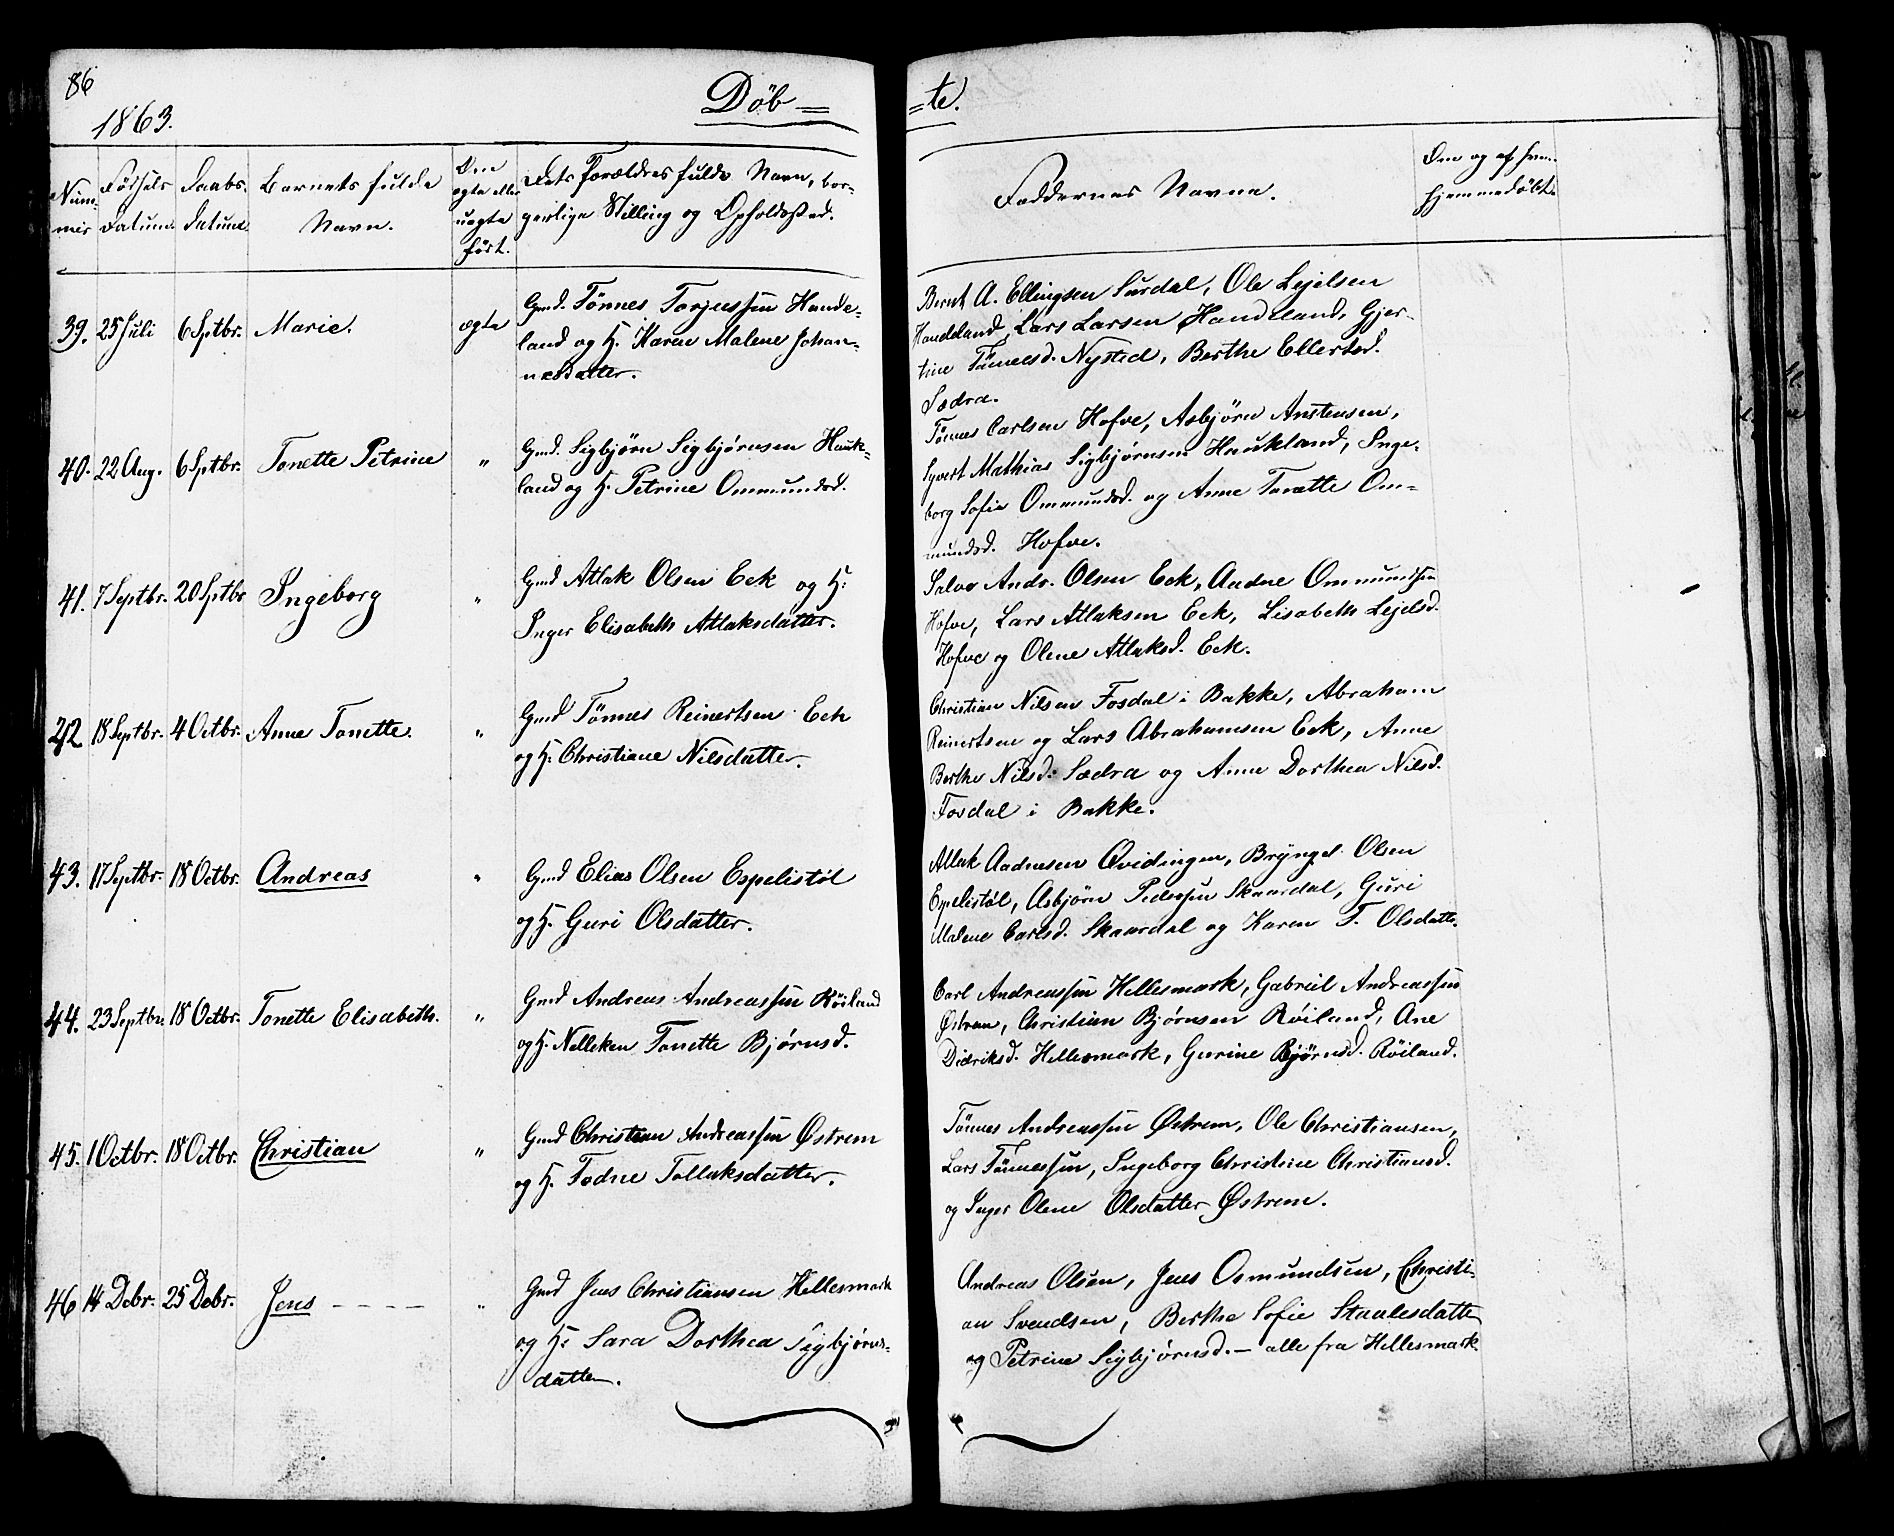 86
1863.
Døb=
=te.
Num-
mer
Fødsels
Datum.
Daabs.
Datum.
Barnets fulde
Navn.
Om
ægte eller
uægte
født.
Dets Forældres fulde Navn, bor-
gerlige Stilling og Opholdssted.
Faddernes Navne.
Om og af hvem
hjemmedøbt.
39. 25 Juli 6 Sptbr. Marie. ægte
Gmd. Tønnes Torjussen Hande-
land og H. Karen Malene Johan-
nesdatter.
Bernt A. Ellingsen Surdal, Ole Lejelsen
Handeland, Lars Larsen Handeland, Gjer-
tine Tønnesd. Nysted, Berthe Ellertsd.
Sædra.
40. 22 Aug. 6 Sptbr. Tonette Petrine "
Gmd. Sigbjørn Sigbjørnsen Hauk-
land og H. Petrine Ommundsd.
Tønnes Carlsen Hofve, Asbjørn Anstensen,
Syvert Mathias Sigbjørnsen Haukland, Inge-
borg Sofie Ommundsd. og Anne Tonette Om-
mundsd. Hofve.
41. 7 Septbr. 20 Sptbr Ingeborg "
Gmd Atlak Olsen Eek og H:
Inger Elisabeth Atlaksdatter.
Salve Andr. Olsen Eek, Aadne Ommundsen
Hofve, Lars Atlaksen Eek, Lisabeth Lejelsd.
Hofve og Olene Atlaksd. Eek.
42 18 Septbr. 4 Octbr. Anne Tonette. "
Gmd Tønnes Reinertsen Eek
og H. Christiane Nilsdatter.
Christian Nilsen Fosdal i Bakke, Abraham
Reinertsen og Lars Abrahamsen Eek, Anne
Berthe Nilsd. Sædra og Anne Dorthea Nilsd.
Fosdal i Bakke.
43. 17 Septbr. 18 Octbr. Andreas "
Gmd Elias Olsen Espelistøl
og H. Guri Olsdatter.
Atlak Aadnesen Qvidingen, Brynjel Olsen
Espelistøl, Asbjørn Pedersen Skaardal, Guri
Malene Carlsd. Skaardal og Karen F. Olsdatt.
44. 23 Septbr. 18 Octbr. Tonette Elisabeth. "
Gmd Andreas Andreassen Røiland
og H. Nelleken Tonette Bjørnsd.
Carl Andreassen Hellesmark, Gabriel Andreassen
Østrem, Christian Bjørnsen Røiland, Ane
Didriksd. Hellesmark, Gurine Bjørnsd. Røiland.
45. 1 Octbr. 18 Octbr. Christian "
Gmd Christian Andreassen Østrem
og H. Todne Tollaksdatter.
Tønnes Andreassen Østrem, Ole Christiansen,
Lars Tønnessen, Ingeborg Christine Christiansd.
og Inger Olene Olsdatter Østrem.
46 14 Debr. 25 Debr. Jens - - - - "
Gmd Jens Christiansen Hellesmark
og H: Sara Dorthea Sigbjørns-
datter.
Andreas Olsen, Jens Osmundsen, Christi-
an Svendsen, Berthe Sofie Staalesdatter
og Petrine Sigbjørnsd. – alle fra Hellesmark.